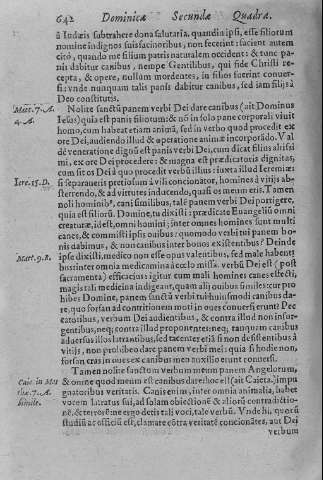 642 Dominicæ Secundæ Quadra.
ũ Iudæis subtrahere dona salutaria, quandia ipsi, esse filiorum
nomine indignos suis factionibus, non fecerint: faciunt autem
citò, quando nec filium patris naturalem occidunt: & tunc pa-
nis dabitur canibus, nempe Gentilibus, qui fide Christi re-
cepta, & opere, nullum mordentes, in filios fuerint conuer-
si: vnde nunquam talis panis dabitur canibus, sed iam filijs à
Deo constitutis.
Matt. 7. A.
4. A.
Nolite sanctũ panem verbi Dei dare canibus (ait Dominus
Iesus) quia est panis filiorum: & nõ in solo pane corporali viuit
homo, cum habeat etiam animã, sed in verbo quod procedit ex
ore Dei, audiendo illud & operatione animæ incorporãdo. Val
dè veneratione dignũ est panis verbi Dei, cum dicat filius altissi
mi, ex ore Dei procedere: & magna est prædicatoris dignitas,
cum sit os Dei à quo procedit verbũ illius: iuxta illud Ieremiæ:
Iere. 15. D.
si separaueris pretiosum à vili concionator, homines à vitijs ab-
sterrendo, & ad virtutes inducendo, quasi os meum eris. Tamen
noli hominibꝰ, cani similibus, talè panem verbi Dei porrigere,
quia est filiorũ. Domine, tu dixisti: prædicate Euangeliũ omni
creaturæ, id est, omni homini; inter omnes homines sunt multi
canes, & commisti ipsis ouibus: quomodo verbi tui panem bo-
nis dabimus, & non canibus inter bonos existentibus? Deinde
Matt. 9. B.
ipse dixisti, medico non esse opus valentibus, sed malè habenti
bus: inter omnia medicamina à ecclo missa, verbũ Dei est (post
sacramenta) efficacius: igitur cum mali homines canes effecti,
magis tali medicina indigeant, quam alij ouibus similes: cur pro
hibes Domine, panem sanctũ verbi tui huiusmodi canibus da-
re, quo forsan ad contritionem moti in oues conuersi erunt? Pec
catoribus, verbum Dei audientibus, & contra illud non insur-
gentibus, neq; contra illud proponentes: neq; tanquam canibus
aduersus illos latrantibus, sed tacente: etiã si non desistentibus à
vitijs, non prohibeo dare panem verbi mei: quia si hodie non,
forsan cras in oues ex canibus meo auxilio erunt conuersi.
Tamen nolite sanctum verbum meum panem Angelorum,
Caie. in Mat
thæ. 7. A.
Simile.
& omne quod meum est canibus dare: hoc est (ait Caieta.) im-
pugnatoribus veritatis. Canis enim, inter omnia animalia, habet
vocem latratus sui, ad solam obiectionẽ & aliorũ contradictio-
nẽ, & terrorẽ: me ergo detis tali voci, tale verbũ. Vnde hi, quorũ
studiũ ac officiũ est, clamare cõtra veritatẽ concionãtes, aut Dei
verbum